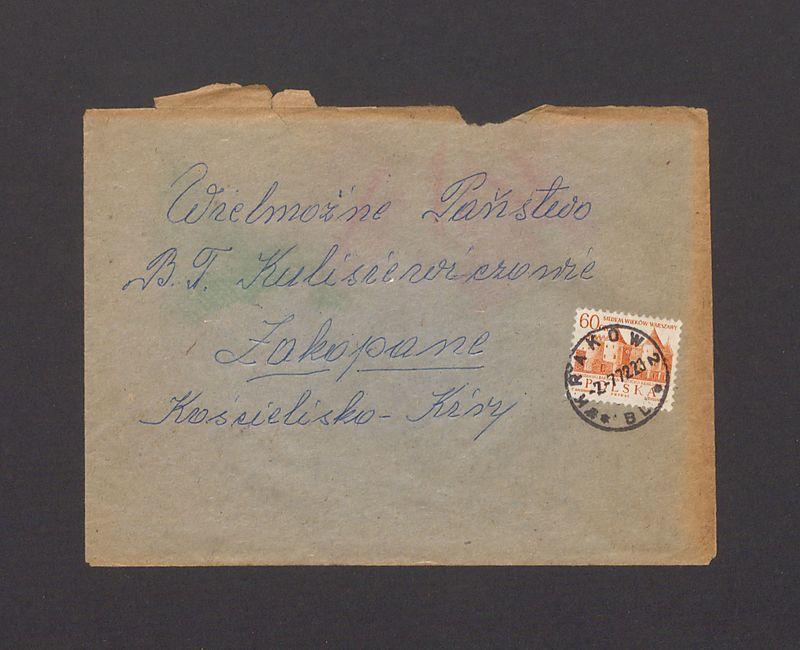 Wielmożne Państwo
B. T. Kulisiewiczowie
Zakopane
Kościelisko - Krzy
60 SIEDEM WIEKÓW WARSZAWY
POLSKA
KRAKÓW 2
-2-7 72 23
* BL *